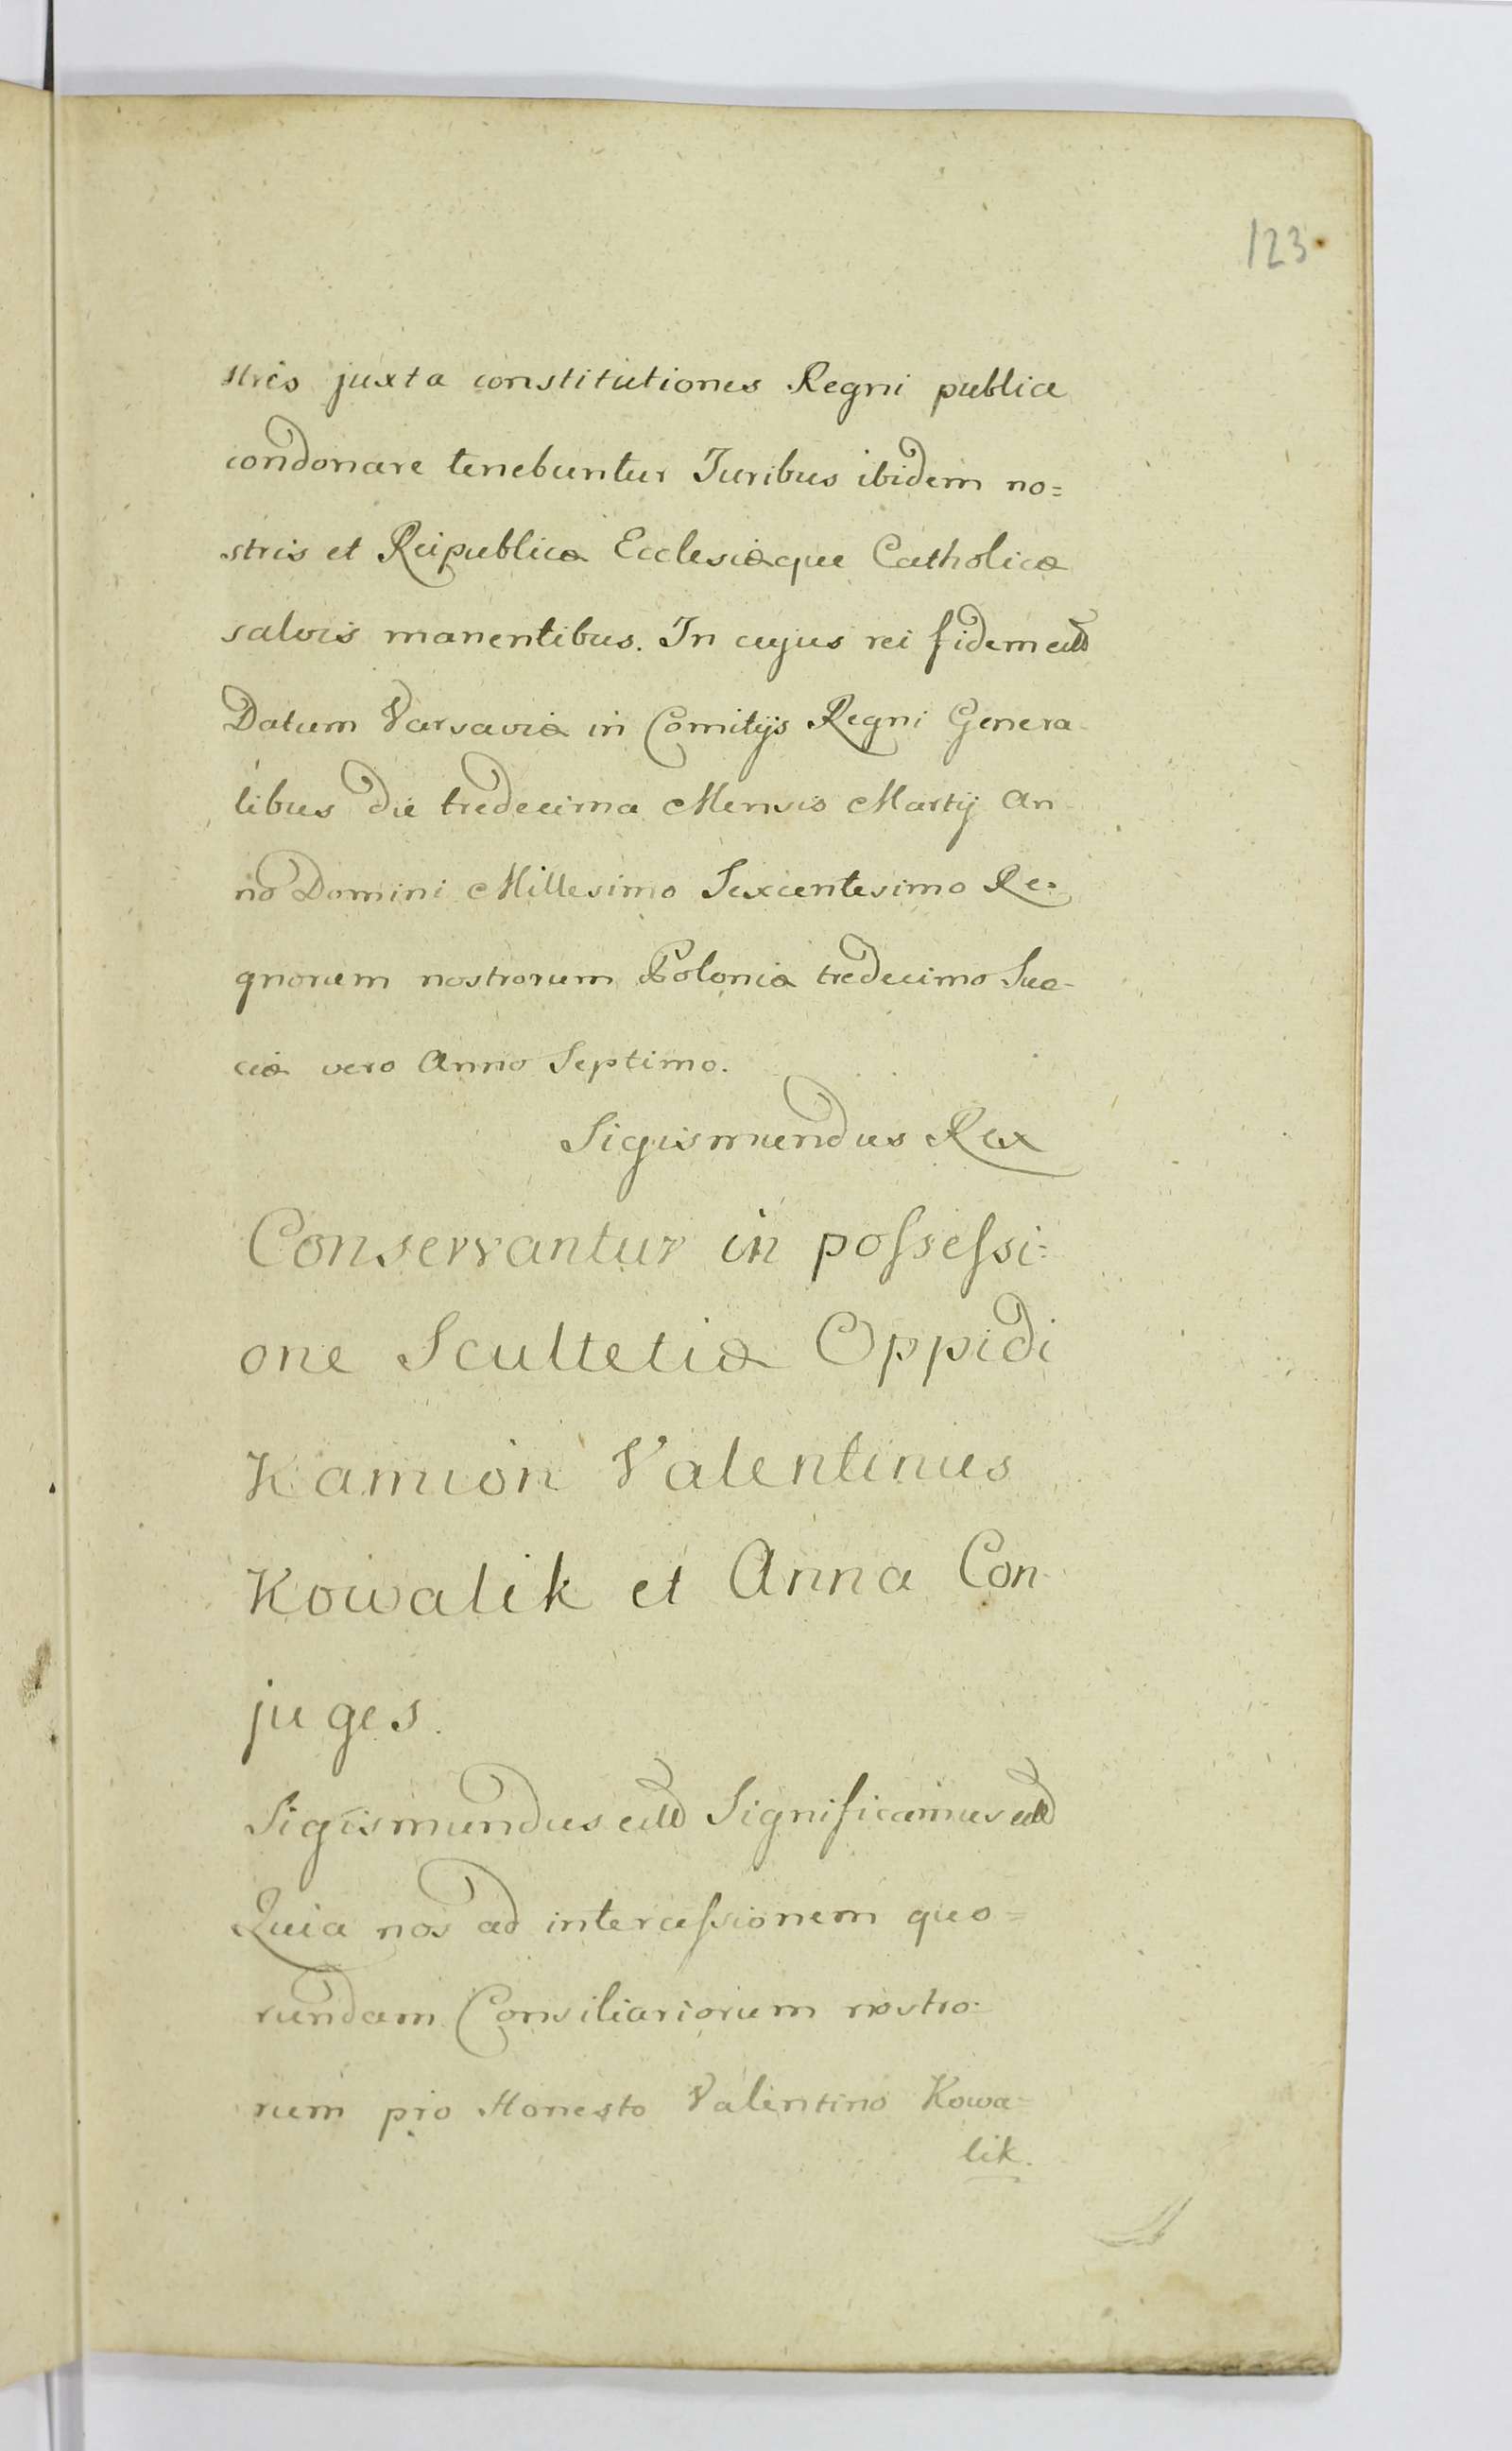 123
stris juxta constitutiones Regni publice
condonare tenebuntur Juribus ibidem no=
stris et Reipublicæ Ecclesiæque Catholicæ
salvis manentibus. In cujus rei fidem etc
Datum Varsaviæ in Comitijs Regni Genera-
libus die tredecima Mensis Martij An-
no Domini Millesimo Sexcentesimo Re=
gnorum nostrorum Poloniæ tredecimo Sue-
ciæ vero Anno Septimo.
Sigismundus Rex
Conservantur in poſseſsi=
one Scultetiæ Oppidi
Kamion Valentinus
Kowalik et Anna Con-
juges.
Sigismundus etc Significamus etc
Quia nos ad interceſsionem quo=
rundam Consiliariorum nostro=
rum pro Honesto Valentino Kowa=
lik.